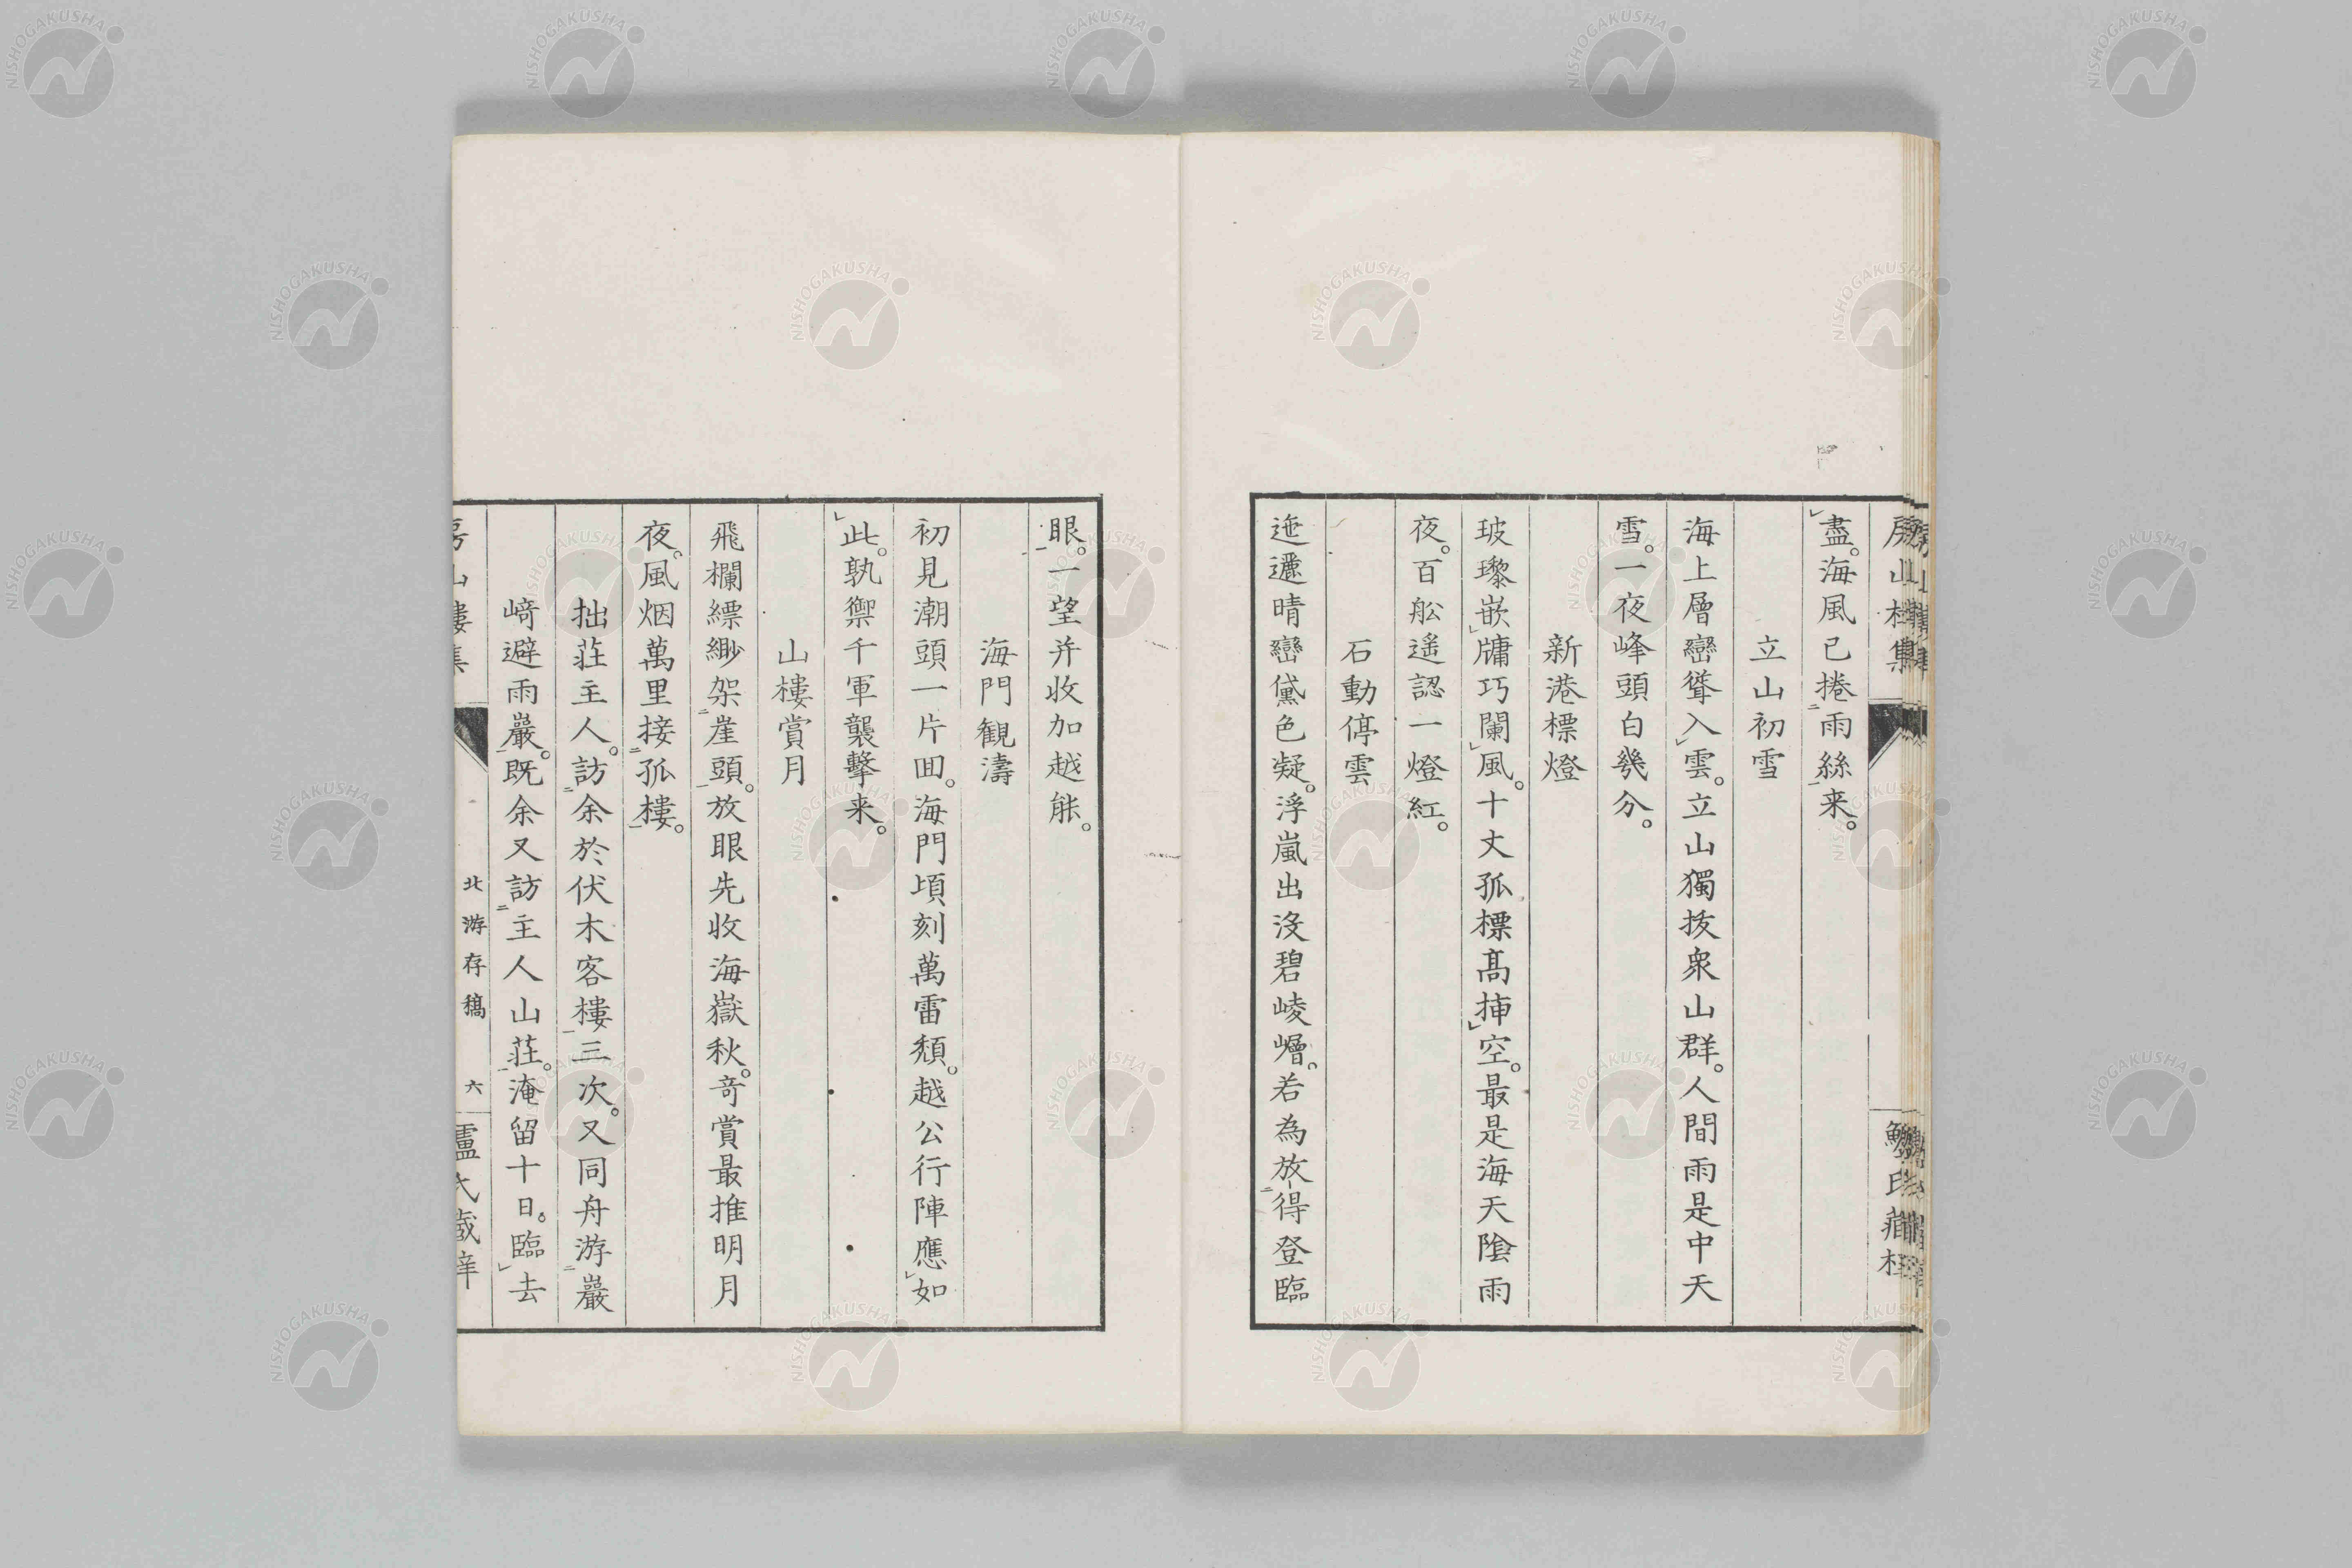 盡。海風已捲雨絲来。
立山初雪
海上層巒聳入雲。立山獨抜衆山群。人間雨是中天
雪。一夜峰頭白幾分。
新港標燈
玻瓈嵌牗巧闌風。十丈孤標髙挿空。最是海天陰雨
夜。百舩遥認一燈紅。
石動停雲
迤邐晴巒黛色凝。浮嵐出沒碧崚嶒。若為放得登臨
眼。一望并收加越能。
海門観濤
初見潮頭一片囬。海門頃刻萬雷頽。越公行陣應如
此。孰禦千軍襲擊来。
山樓賞月
飛欄縹緲架崖頭。放眼先收海嶽秋。奇賞最推明月
夜。風烟萬里接孤樓。
拙莊主人。訪余於伏木客樓三次。又同舟游巖
﨑避雨巖。既余又訪主人山莊。淹留十日。臨去
北游存稿
六
NISHOGAKUSHA